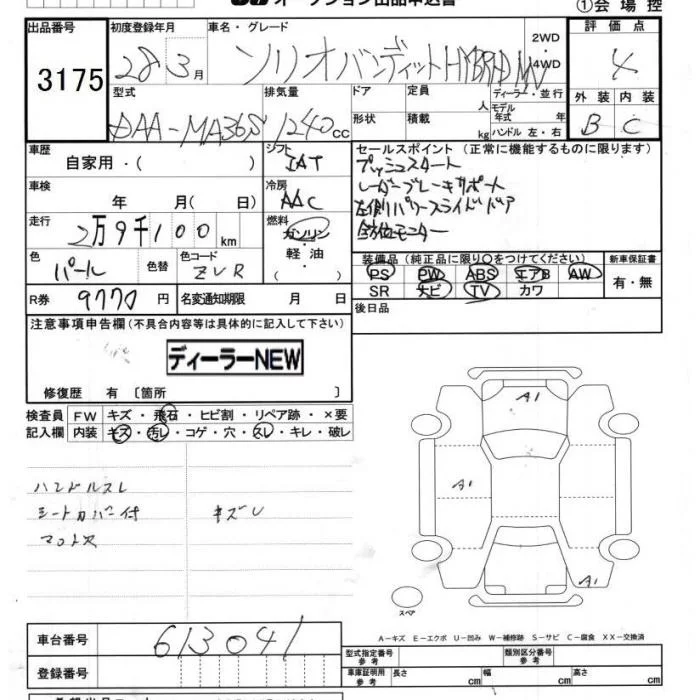 オークション出品申込書 ①会場控
出品番号 初度登録年月 車名・グレード 2WD 評価点
3175 28年3月 ソリオバンディットHYBRID MV 4WD 4
型式 排気量 ドア 定員 人 ディーラー・並行 外装 内装
DAA-MA36S 1240cc 形状 積載 kg モデル年式 年 ハンドル 左・右 B C
車歴 自家用・( ) シフト IAT セールスポイント (正常に機能するものに限ります)
プッシュスタート
車検 年 月( 日) 冷房 AAC レーダーブレーキサポート
左側パワースライドドア
走行 2万9千100km 燃料 ガソリン・軽油・( ) 全方位モニター
色 パール 色替 色コード ZVR 装備品 (純正品に限り○をつけてください) 新車保証書
PS PW ABS エアB AW 有・無
SR ナビ TV カワ
R券 9770円 名変通知期限 月 日 後日品
注意事項申告欄 (不具合内容等は具体的に記入して下さい)
ディーラーNEW
修復歴 有 〔箇所 〕
検査員 FW キズ・飛石・ヒビ割・リペア跡・×要
記入欄 内装 キズ・汚レ・コゲ・穴・スレ・キレ・破レ
A1
ハンドルスレ A1
シートカバー付 キズレ
マットス
A1
スペア
A-キズ E-エクボ U-凹み W-補修跡 S-サビ C-腐食 XX-交換済
車台番号 613041
型式指定番号 参考 類別区分番号 参考
登録番号 車庫証明用 参考 長さ cm 幅 cm 高さ cm